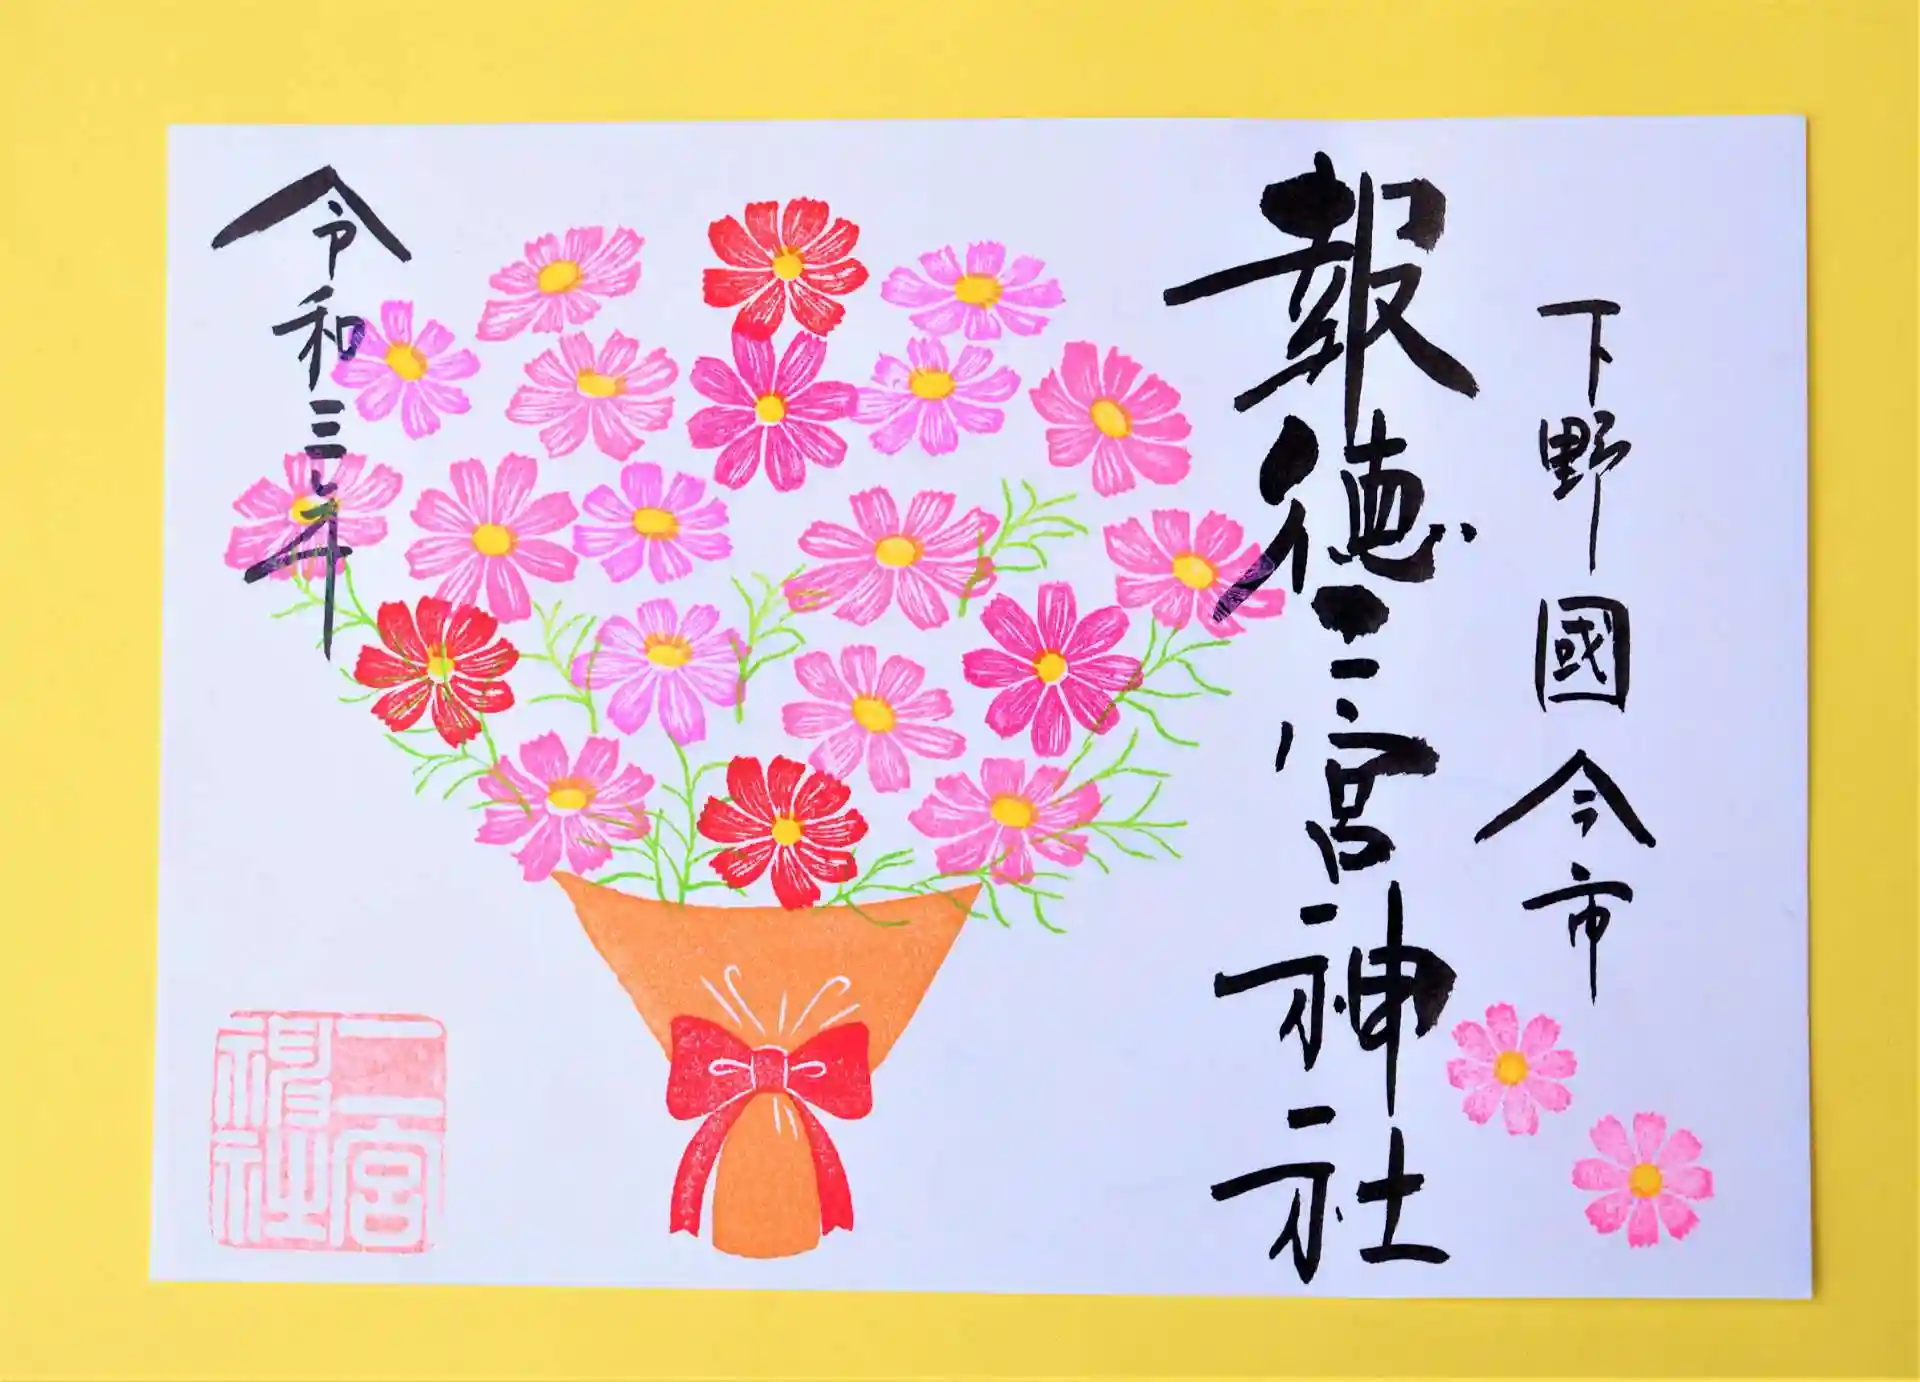 下野國今市
報徳二宮神社
令和三年
二宮
神社